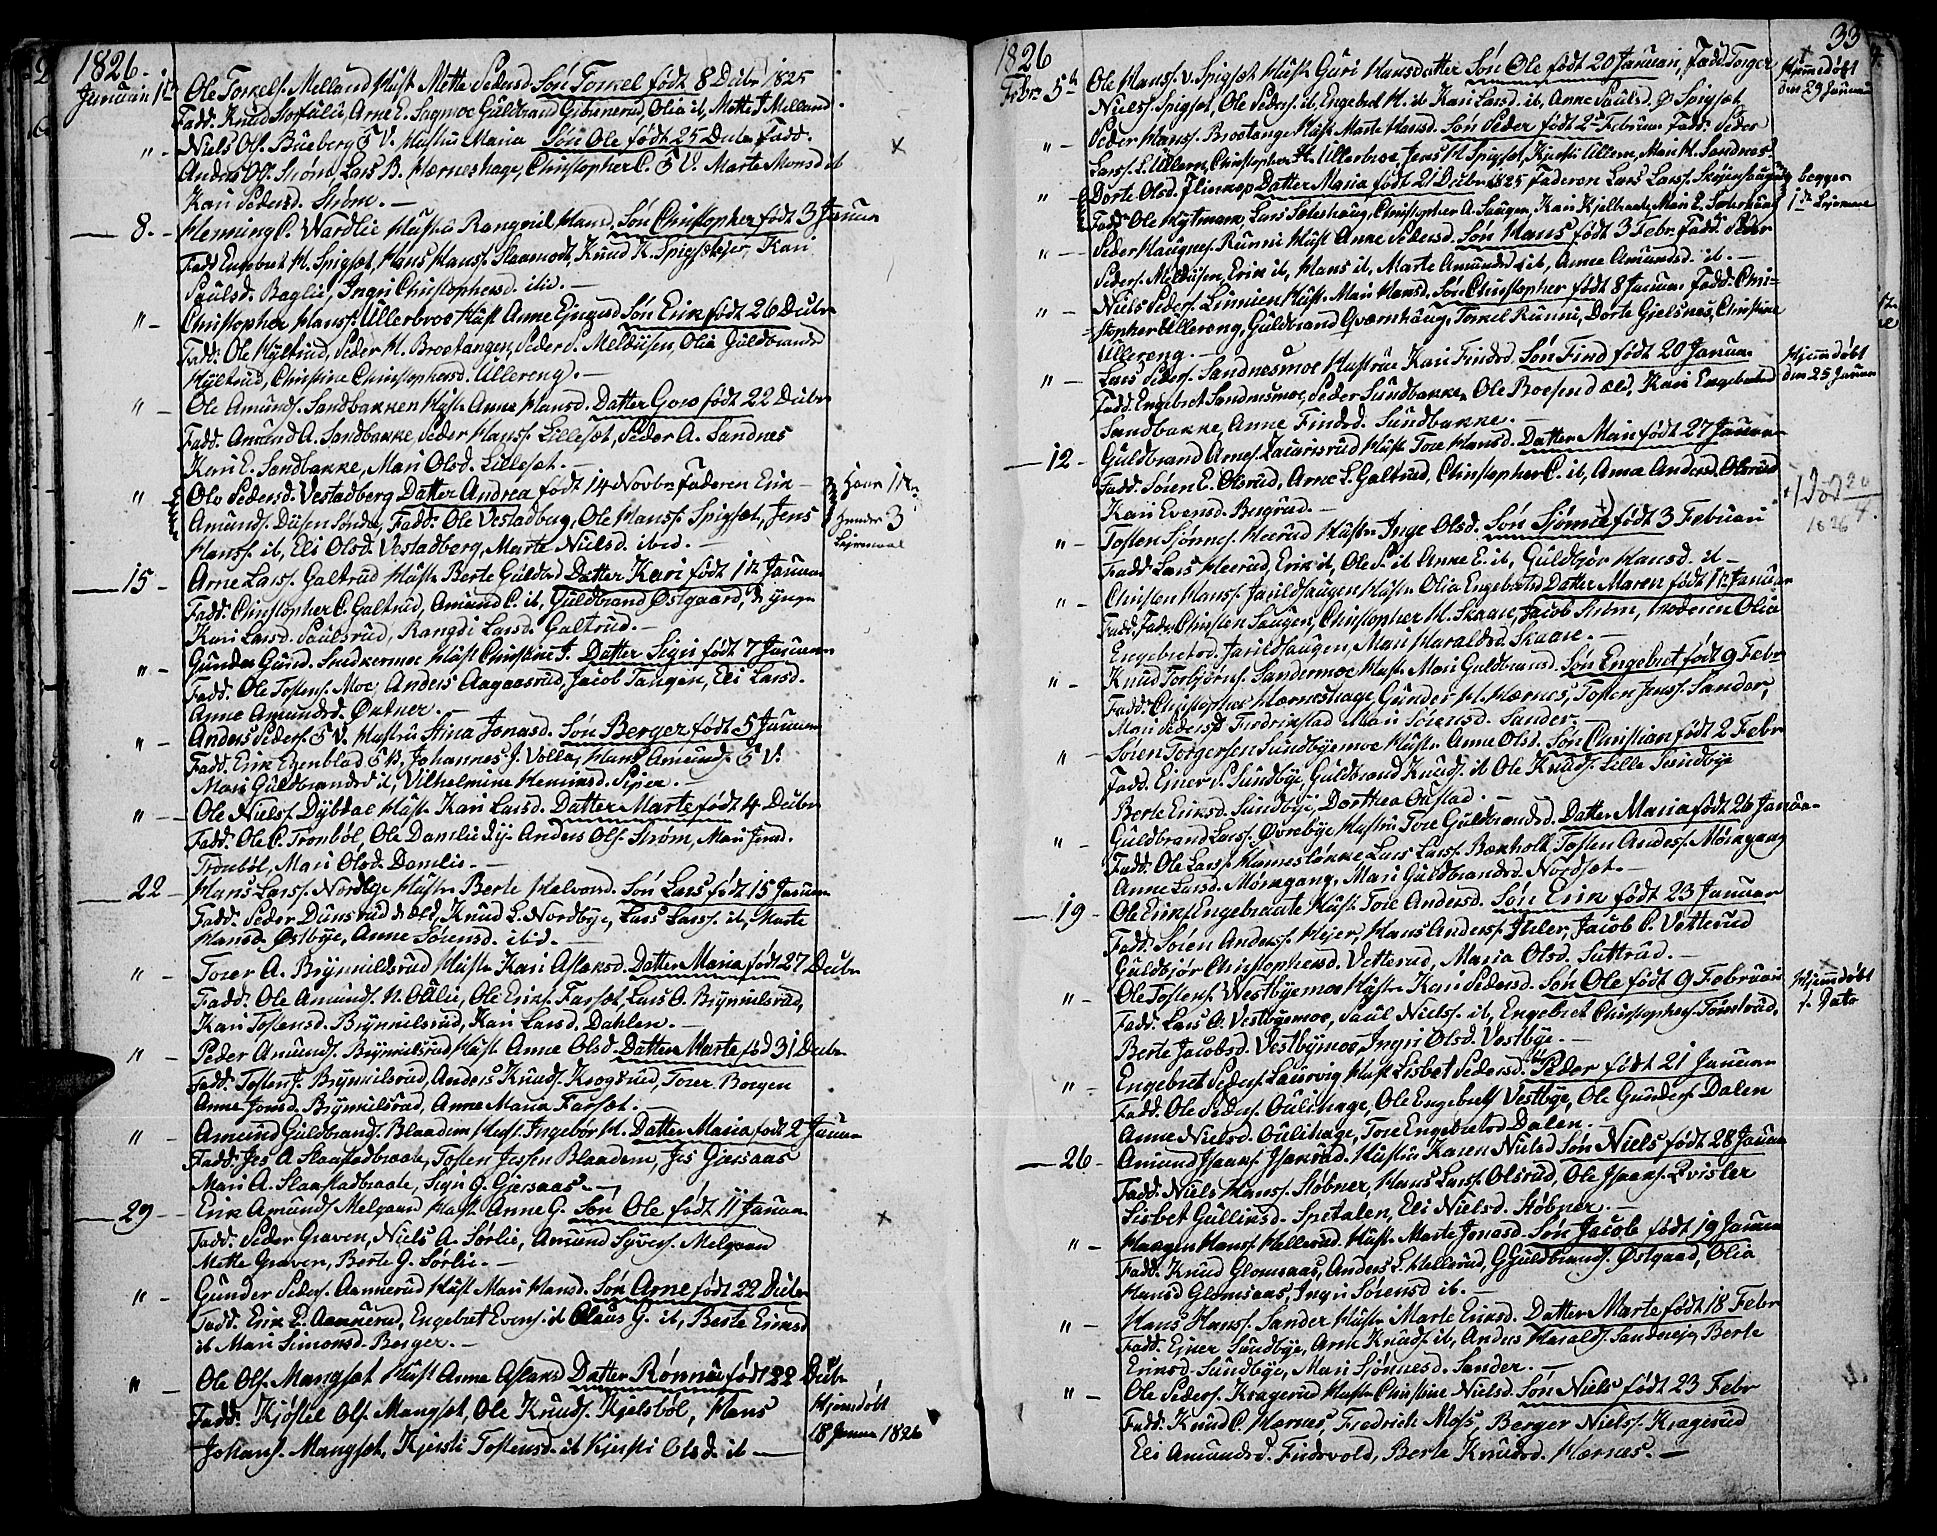 1826.
Januari 1te Ole Torkels. Melland Hust Mette Pedersd Søn Torkel født 8 Decbr 1825
Fadd. Knud Arne E. Guldbrand Olia it, Mette J Melland
" - Niels Ols. Bueberg Hustru Maria Søn Ole født 25 Decbr Fadd.
Anders Ol. Strøm, Lars B. Hærneshage, Christopher C. Marte Monsd it
Kari Pedersd. Strøm. -
8. - Hemming C. Wardlie Hustru Rangnil Hansd. Søn Christopher født 3 Januar
Fadd Engebret H. Spigset, Hans Hanss. Knud K. Kari
Paulsd. Baglie, Ingri Christophersd. ibid. -
" - Christopher Hanss. Ullerbroe Hust Anne Søn Erik født 26 Decbr
Fadd. Ole Hyltrud, Peder H. Broetangen, Peder Olia Guldbrandsd
Hyltrud, Christine Christophersd. Ullereng. -
" - Ole Amunds. Sandbakken Hustr Anne Hansd. Datter Goro født 22 Decbr
Fadd. Amund A. Sandbakke, Peder Hanss. Lilleset, Peder A. Sandnes
Kari E. Sandbakke, Mari Olsd. Lilleset. -
" - Pedersd. Vestadberg Datter Andrea født 14 Novbr Faderen Erik
Amunds. Fadd: Ole Vestadberg, Ole Hanss. Spigset, Jens
Hanss. it, Eli Olsd. Vestadberg, Marte Nielsd. ibid. -
3
15 - Arne Larss. Galtrud Hust Berte Datter Kari født 1te Januar
Fadd: Christopher C. Galtrud, Amund C. it, Guldbrand Østgaard, d. ynge
Kari Larsd. Paulsrud, Rangdi Larsd. Galtrud. -
" - Gunder Hust Christine J. Datter Sigri født 7 Januar
Fadd. Ole Tostens. Moe, Anders Aagaasrud, Jacob Tangen, Eli Larsd.
Anne Amundsd. -
" - Anders Peders. Hustru Stina Jonasd. Søn Berger født 5 Januar
Fadd. Erik Johannes J. Volla, Hans Amunds.
Mari Guldbrandsd it, Vilhelmine
" - Ole Niels. Dybdal Hust Kari Larsd. Datter Marte født 4 Decbr
Fadd. Ole C. Trondbøl, Ole Damlie Anders Ols. Strøm, Mari
Trondbøl, Mari Olsd. Damlie. -
22 - Hans Larss. Nordbye Hustr Berte Halvorsd. Søn Lars født 15 Januar
Fadd. Peder Dunsrud d. Æld, Knud L. Nordbye, Lars Larss. it, Marte
Hansd. Østbye, Anne Sørensd. ibid. -
" - Torer A. Brynnildsrud Hustr Kari Aslaksd. Datter Maria født 27 Decbr
Fadd. Ole Amunds. N. Oulie, Ole Eriks. Farset, Lars O. Brynnilsrud,
Kari Tostensd. Brynnilsrud, Kari Larsd. Dahlen. -
" - Peder Amunds. Brynnilsrud Hust Anne Olsd. Datter Marte fød 31 Decbr
Fadd. Tosten J. Brynnilsrud, Anders Knuds. Krogsrud, Torer Borgen
Anne Brynnilsrud, Anne Maria Farset. -
" - Amund Guldbrands. Blaadum Hust. Ingebor H. Datter Maria født 2 Januar
Fadd: Jes A. Slaastadbraate, Tosten Jessen Blaadene, Jes Gjersaas
Mari A. Slaastadbraate, Sigri G. Gjersaas. -
29 - Erik Amunds. Melgaard Hust Anne G. Søn Ole født 11 Januar
Fadd. Peder Graven, Niels A. Sørlie, Amund Melgaard
Mette Graven, Berte G. Sørlie. -
" - Gunder Peders. Aannerud Hust Mari Hansd. Søn Arne født 22 Decbr
Fadd. Erik E. Aannerud, Engebret Evens. it Claus G. it, Berte Eriksd
it Mari Simonsd. Berger. -
" - Ole Ols. Mangset Hust Anne Aslaksd Datter Rønnau født 22 Decbr
Fadd. Kjøstel Ols. Mangset, Ole Knuds. Kjelsbøl, Hans
Johans. Mangset, Kjersti Tostensd. it Kjersti Olsd. it -
Hjemdøbt
18 Januar 1826
1826
33
Febr. 5te Ole Hanss. v. Spigset Hustr Guri Hansdatter Søn Ole født 20 Januari, Fadd. Torger
Niels. Spigset, Ole Peders. it, Engebret H. it Kari Larsd. it, Anne Paulsd. Ø Spigset
Hjemmedøbt
den 29 Januar
" - Peder Hanss. Broetange Hust Marte Hansd. Søn Peder født 2d Februar Fadd. Peder
Larss. L. Ullern, Christopher H. Ullerbroe, Jens H. Spigset, Kjersti Ullern, Mari H. Sandnes
" - Dorte Olsd. Datter Maria født 21 Decbr 1825 Faderen Lars Larss.
begges
1te
Fadd. Ole Lars Christopher A. Haugen, Kari
" - Peder Haagens. Runni Hust Anne Pedersd. Søn Hans født 3 Febr. Fadd. Peder
Peders. Erik it, Hans it, Marte Amundsd it, Anne Amundsd. it. -
" - Niels Peders. Hust. Mari Hansd. Søn Christopher født 8 Januar Fadd. Chri-
stopher Ullereng, Guldbrand Qværnhaug, Torkel Runni, Dorte Gjelsnes, Christine
Ullereng. -
" - Lars Peders. Sandnesmoe Hustrue Kari Findsd. Søn Find født 20 Januar
Hjemdøbt
den 25 Januar
Fadd. Engebret Sandnesmoe, Peder Sundbakke, Ole Æld, Kari Engebretsd
Sandbakke, Anne Findsd. Sundbakke. -
12 - Guldbrand Arnes. Zacarisrud Hustr Tore Hansd. Datter Mari født 27 Januar
Fadd. Søren E. Olsrud, Arne L. Galtrud, Christopher C. it, Anne Andersd. Olsrud
Kari Evensd. Bergrud. -
" - Tosten Sjønnes. Heerud Hustr Inge Olsd. Søn Sjønne født 3 Februari
Død 20/4. 1826
Fadd. Lars Heerud, Erik it, Ole P. it Anne E. it, Guldbjør Hansd. it -
" - Christen Hanss. Jarildhaugen Hustr Olia Engebretsd Datter Maren født 1te Januar
Fadd. Christen Haugen, Christopher H. Skaare, Jacob Strøm, Moderen Olia
Engebretsd. Jarildhaugen, Mari Haraldsd. Skaare. -
" - Knud Torbjørns. Sandermoe Hustr Mari Guldbrandsd. Søn Engebret født 9 Febr
Fadd. Christopher Hærneshage, Gunder H. Hærnes, Tosten Jenss. Sander,
Mari Pedersd Fredrikstad Mari Sørensd. Sander. -
" - Søren Torgersen Sundbyemoe Hustr Anne Olsd. Søn Christian født 2 Febr
Fadd. Ejner P. Sundbye, Guldbrand Knuds. it Ole Knuds. Lille Sundbye
Berte Eriksd. Sundbye, Dorthea Oustad. -
" - Guldbrand Larss. Øvrebye Hustru Tore Guldbrandsd. Datter Maria født 26 Januar
Fadd. Ole Larss. Lars Larss. Bækholt, Tosten Anders. Mørkgang
Anne Larsd. Mørkgang, Mari Guldbrandsd. Nordset. -
19 - Ole Eriks. Engebraate Hustr. Tore Andersd. Søn Erik født 23 Januar
Fadd. Søren Anders. Mejer, Hans Anders. Ihler, Jacob C. Vetterud
Guldbjør Christophersd. Vetterud, Maria Olsd. Suttrud. -
" - Ole Tostens. Westbyemoe Hustr Kari Pedersd. Søn Ole født 9 Februar
Hjemmdøbt
s. Dato
Fadd. Lars O. Vestbyemoe, Paul Niels. it, Engebret Christophers. Tømtrud,
Berte Jacobsd. Vestbymoe, Ingri Olsd. Vestbye. -
" - Engebret Peders. Laurvig Hust Lisbet Pedersd. Søn Peder født 21 Januar
Fadd. Ole Peders. Oulihage, Ole Engebrets. Vestbye, Ole Gunders. Dalen
Anne Nielsd. Oulihage, Tore Engebretsd Dalen. -
26 - Amund Isaks. Isakrud Hustr Karen Nielsd Søn Niels født 28 Januar
Fadd. Niels Hanss. Støbner, Hans Larss. Olsrud, Ole Isaks. Qvisler
Lisbet Gulliksd. Spetalen, Eli Nielsd. Støbner. -
" - Haagen Hanss. Hellerud Hust Marte Jonasd. Søn Jacob født 19 Januar
Fadd. Knud Glomsaas, Anders E. Hellerud, G Guldbrands. Østgaard, Olia
Hansd Glomsaas, Ingri Sørensd it. -
" - Hans Hanss. Sander Hustr Marte Eriksd. Datter Marte født 18 Febr
Fadd. Ejner Sundbye, Arne Knuds. it, Anders Haralds. Berte
Eriksd. Sundbye, Mari Sjønnesd. Sander. -
" - Ole Peders. Kragerud Hustr Christine Nielsd Søn Niels født 23 Febr
Fadd. Knud C. Hærnes, Fredrich Moss, Berger Nielss. Kragerud
Eli Amundsd. Fredsvold, Berte Knudsd. Hærnes. -